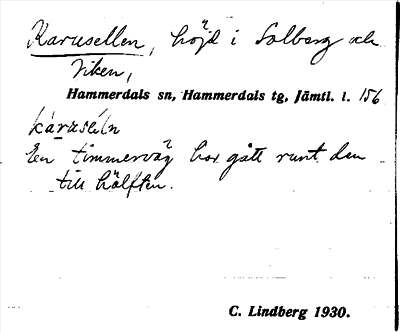 Karusellen, höjd i Solberg och
Viken,
Hammerdals sn, Hammerdals tg, Jämtl. l. 156
karuséln
En timmerväg har gått runt den
till hälften.
C. Lindberg 1930.